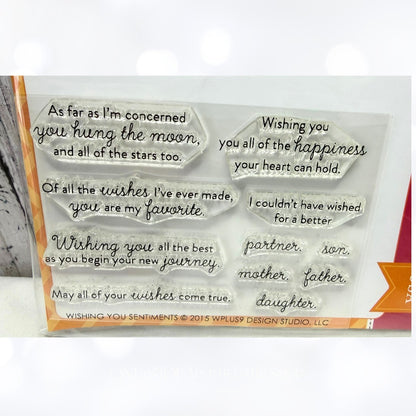 As far as I'm concerned
you hung the moon,
and all of the stars too.
Wishing you
you all of the happiness
your heart can hold.
Of all the wishes I've ever made,
you are my favorite.
I couldn't have wished
for a better
Wishing you all the best
as you begin your new journey.
partner.
son.
mother.
father.
daughter.
May all of your wishes come true.
WISHING YOU SENTIMENTS © 2015 WPLUS9 DESIGN STUDIO, LLC